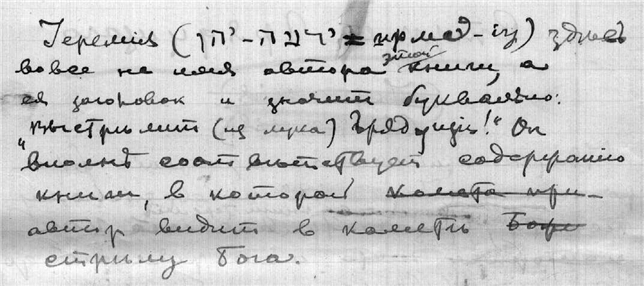 Іеремія ( = іу) здѣсь
вовсе не имя автора этой книги, а
ея заголовок и значит буквально:
"выстрѣлит (из лука) Грядущій!" Он
вполнѣ соотвѣтствует содержанію
книги, в которой комета при-
автор видит в кометѣ
стрѣлу Бога.